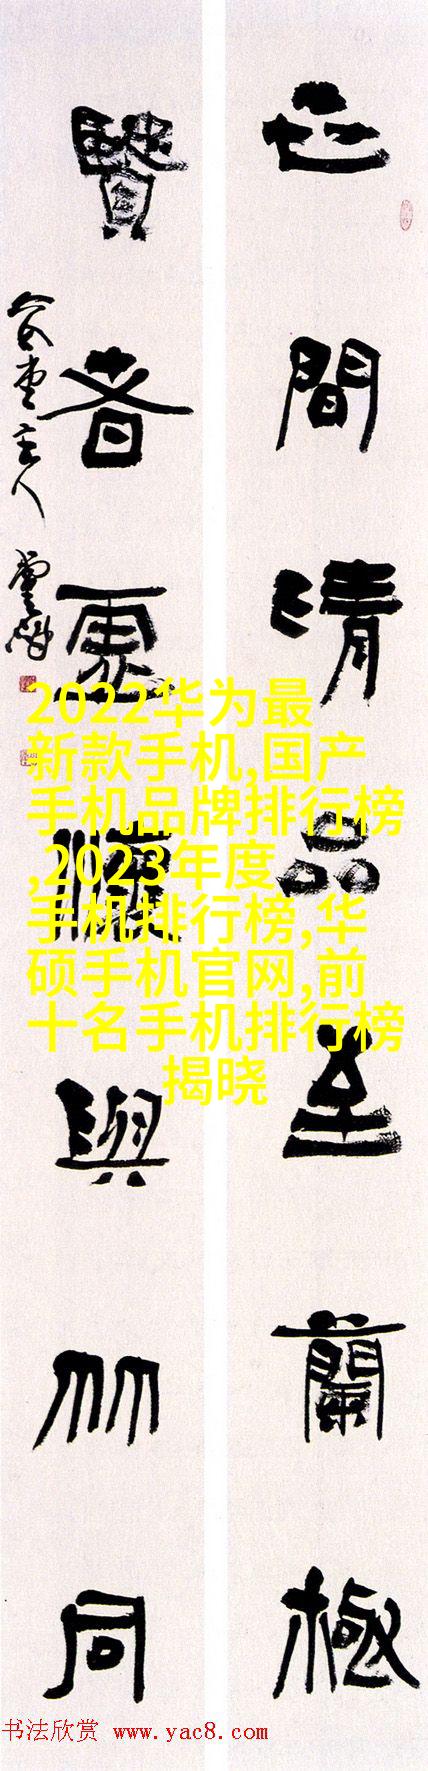 世間清品至蘭極
賢者虛懷與竹同
主人
2022华为最
新款手机,国产
手机品牌排行榜
,2023年度
手机排行榜,华
硕手机官网,前
十名手机排行榜
揭晓
书法欣赏 www.yac8.com